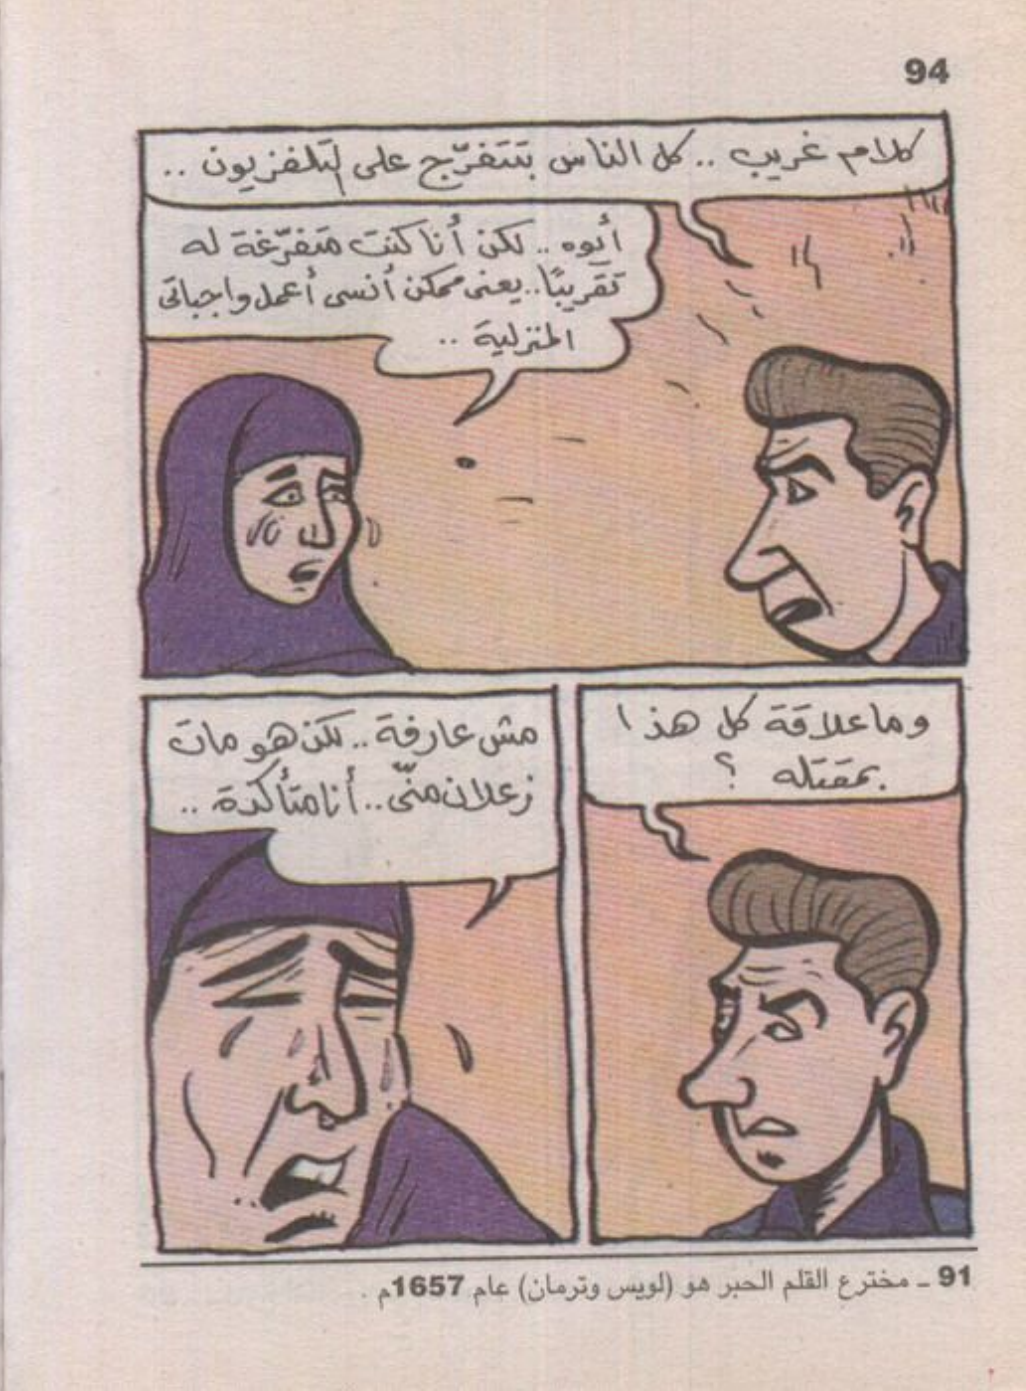 94
كلام غريب .. كل الناس بتتفرّج على التلفزيون ..
أيوه .. لكن أنا كنت متفرّغة له
تقريبًا.. يعنى ممكن أنسى أعمل واجباتى
المنزلية ..
وما علاقة كل هذا
بمقتله ؟
مش عارفة .. لكن هو مات
زعلان منّى .. أنا متأكدة ..
91 ــ مخترع القلم الحبر هو (لويس وترمان) عام 1657م .